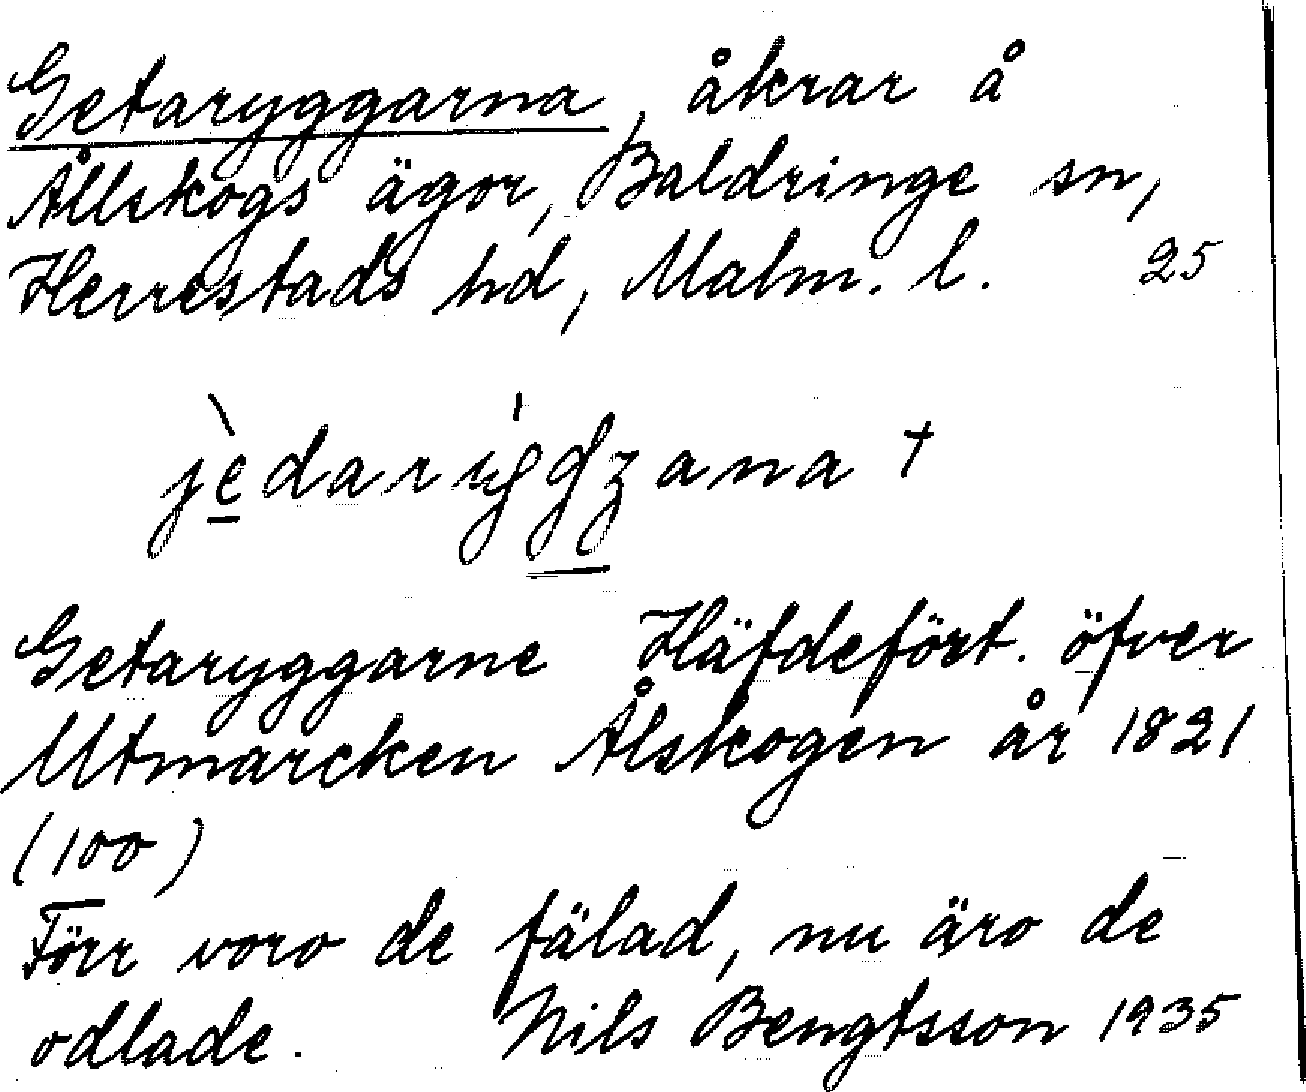 Getaryggarna, åkrar å
Ållskogs ägor, Baldringe sn,
Herrestads hd, Malm. l. 25
Getaryggarne Häfdefört. öfver
Utmarcken Ålskogen år 1821
(100)
Förr voro de fälad, nu äro de
odlade. Nils Bengtsson 1935